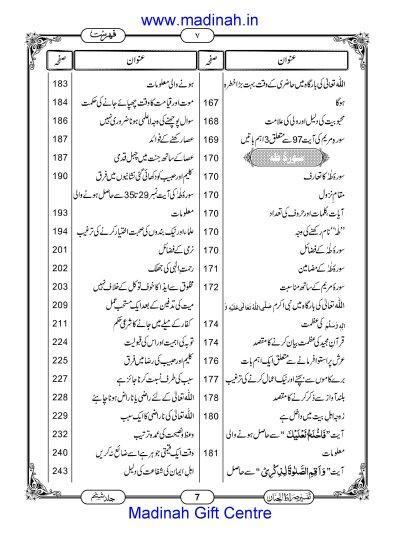 www.madinah.in
فہرست
۷
صفحہ
عنوان
صفحہ
عنوان
اللہ تعالیٰ کی بارگاہ میں حاضری کے وقت بہت بڑا خطرہ
ہوگا 167
محبوبیت کی دلیل اور ولی کی علامت 168
سورۂ مریم کی آیت 97 سے متعلق 3 اہم باتیں 169
سورۂ طٰہٰ
سورۂ طٰہٰ کا تعارف 170
مقامِ نزول 170
آیات، کلمات اور حروف کی تعداد 170
”طٰہٰ“ نام رکھنے کی وجہ 170
سورۂ طٰہٰ کے فضائل 170
سورۂ طٰہٰ کے مضامین 171
سورۂ مریم کے ساتھ مناسبت 172
اللہ تعالیٰ کی بارگاہ میں نبی اکرم صَلَّی اللہُ تَعَالٰی عَلَیْہِ وَ
اٰلِہٖ وَسَلَّمَ کی عظمت 174
قرآنِ مجید کی عظمت بیان کرنے کا مقصد 174
عرش پر استوا فرمانے سے متعلق ایک اہم بات 176
برے کاموں سے بچنے اور نیک اعمال کرنے کی ترغیب 177
بلند آواز سے ذکر کرنے کا مقصد 178
زوجہ اہلِ بیت میں داخل ہے 180
آیت ”فَاخْلَعْ نَعْلَیْكَ“ سے حاصل ہونے والی
معلومات 181
آیت ”وَ اَقِمِ الصَّلٰوةَ لِذِكْرِیْ“ سے حاصل
ہونے والی معلومات 183
موت اور قیامت کا وقت چھپائے جانے کی حکمت 184
سوال پوچھنے کی وجہ لاعلمی ہونا ضروری نہیں 186
عصا رکھنے کے فوائد 187
عصا کے ساتھ جنت میں چہل قدمی 187
کلیم اور حبیب کو دکھائی گئی نشانیوں میں فرق 190
سورۂ طٰہٰ کی آیت نمبر 29 تا 35 سے حاصل ہونے والی
معلومات 193
علماء اور نیک بندوں کی صحبت اختیار کرنے کی ترغیب 194
نرمی کے فضائل 201
رحمتِ الٰہی کی جھلک 202
مخلوق سے ایذا کا خوف توکل کے خلاف نہیں 203
میت کی تدفین کے بعد ایک مستحب عمل 209
کفار کے میلے میں جانے کا شرعی حکم 211
توبہ کی اہمیت اور اس کی قبولیت 224
کلیم اور حبیب کی رضا میں فرق 225
سبب کی طرف نسبت کرنا جائز ہے 227
اللہ تعالیٰ کے لئے راضی یا ناراض ہونا چاہئے 228
اللہ تعالیٰ کی ناراضی کا ایک سبب 229
وعظ و نصیحت کی عمدہ ترتیب 232
وقت ایک قیمتی جوہر ہے اسے ضائع نہ کریں 240
اہلِ ایمان کی شفاعت کی دلیل 243
تفسیر صراط الجنان
7
جلد ششم
Madinah Gift Centre